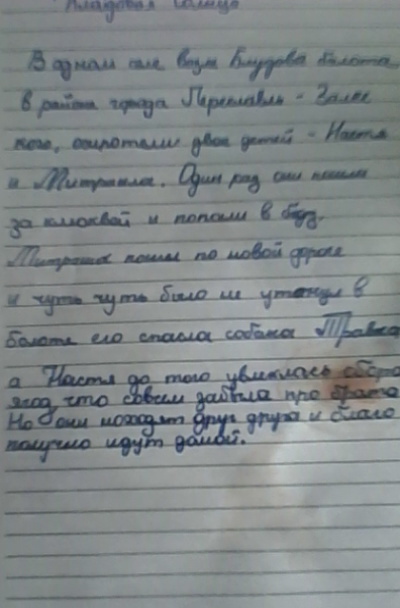 Кладовая солнца
В одном селе возле Блудова болота
в районе города Переславль-Залес
кого, осиротели двое детей - Настя
и Митраша. Один раз они пошли
за клюквой и попали в беду.
Митраша пошел по новой дороге
и чуть чуть было не утонул в
болоте его спасла собака Травка
а Настя до того увлеклась сбора
ягод, что совсем забыла про брата
Но они находят друг друга и благо
получно идут домой.